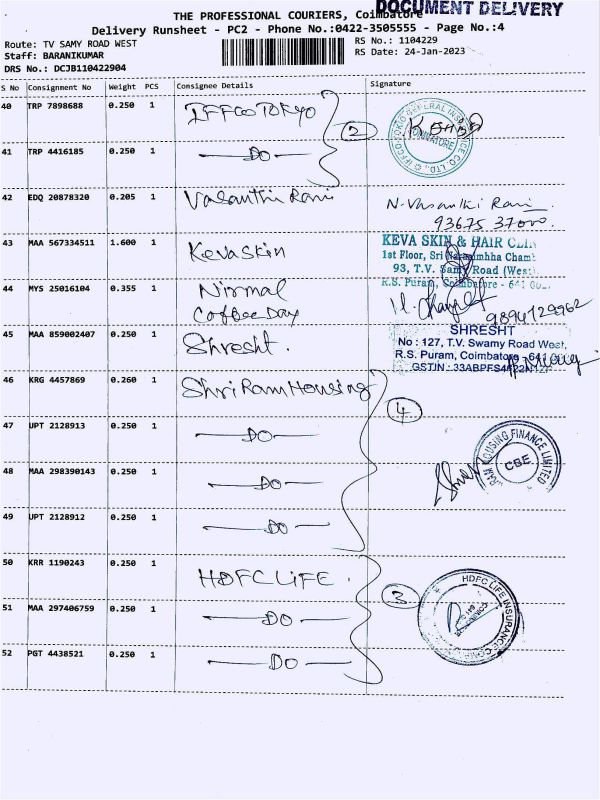 DOCUMENT DELIVERY
THE PROFESSIONAL COURIERS, Coimbatore
Delivery Runsheet - PC2 - Phone No.:0422-3505555 - Page No.:4
Route: TV SAMY ROAD WEST
RS No.: 1104229
Staff: BARANIKUMAR
RS Date: 24-Jan-2023
DRS No.: DCJB110422904
S No Consignment No Weight PCS Consignee Details Signature
40 TRP 7898688 0.250 1 IFFCO TOKYO
2
41 TRP 4416185 0.250 1 — DO —
42 EDQ 20878320 0.205 1 Vasanthi Rani N. Vasanthi Rani
93675 37000
43 MAA 567334511 1.600 1 Keva Skin
KEVA SKIN & HAIR CLIN
1st Floor, Sri Narasimhha Chamb
93, T.V. Samy Road (West)
R.S. Puram, Coimbatore - 641 002.
44 MYS 25016104 0.355 1 Nirmal
Coffee Day
9894729962
45 MAA 859002407 0.250 1 Shresht.
SHRESHT
No : 127, T.V. Swamy Road West,
R.S. Puram, Coimbatore - 641
GSTIN : 33ABPFS4622N1ZP
46 KRG 4457869 0.260 1 Shri Ram Housing
4
47 UPT 2128913 0.250 1 — DO —
RAM HOUSING FINANCE LIMITED
CBE
48 MAA 298390143 0.250 1 — DO —
49 UPT 2128912 0.250 1 — DO —
50 KRR 1190243 0.250 1 HDFC LIFE.
3
HDFC LIFE INSURANCE COMP
51 MAA 297406759 0.250 1 — DO —
52 PGT 4438521 0.250 1 — DO —